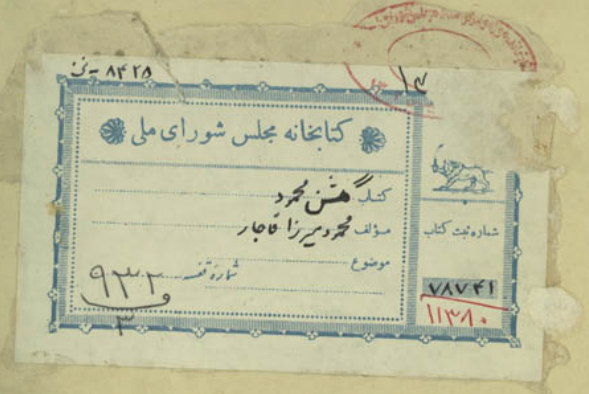 ۸۴۲۵ - ن
۱۲
کتابخانه مجلس شورای ملی
کتاب گلشن محمود
مؤلف محمود میرزا قاجار
موضوع
شماره قفسه ۹۳۲
۳
شماره ثبت کتاب
۷۸۷۴۱
۱۱۳۸۰